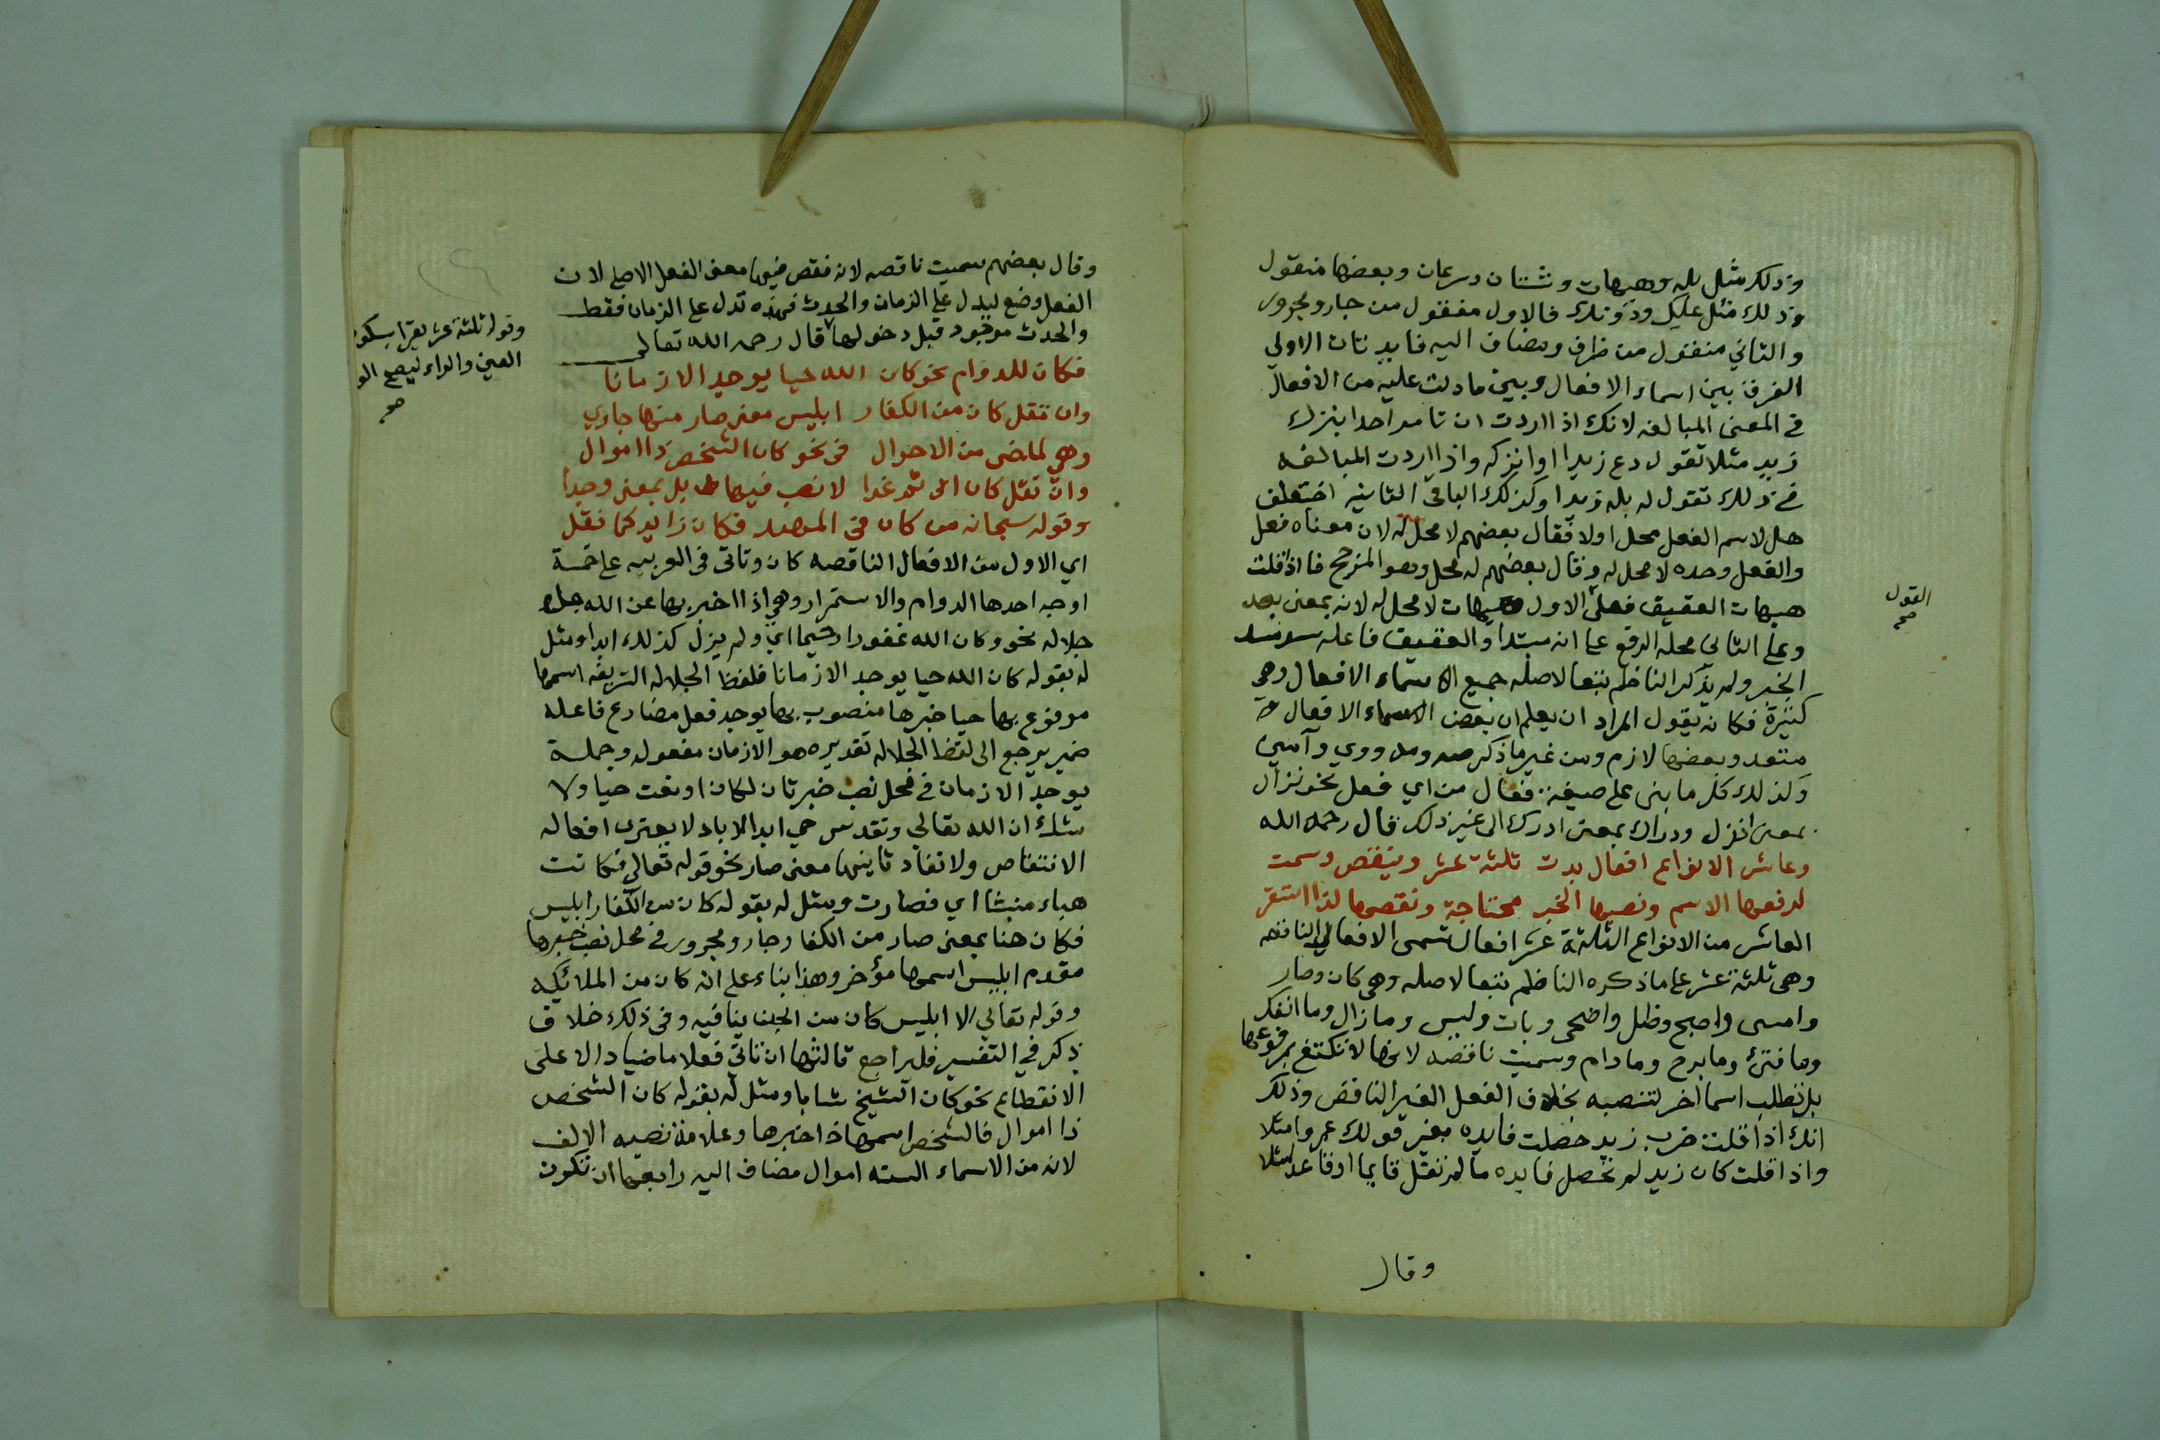 وذلك مثل بله وهيهات وشتان وسرعان وبعضها منقول
وذلك مثل عليك ودونك فالاول منقول من جار ومجرور
والثاني منقول من ظرف ومضاف اليه فايدتان الاولي
الفرق بين اسماء الافعال وبين ما دلت عليه من الافعال
في المعنى المبالغه لانك اذا اردت ان تامر احدا بترك
زيد مثلا تقول دع زيدا او اتركه واذا اردت المبالغه
في ذلك تقول له بله زيدا وكذلك الباقي الثانيه اختلف
هل لاسم الفعل محل اولا فقال بعضهم لا محل له لان معناه فعل
والفعل وحده لا محل له وقال بعضهم له محل وهو المترجح فاذا قلت
هيهات العقيق فعلى الاول هيهات لا محل له لانه بمعنى بعد
وعلى الثاني محله الرفع على انه مبتدا والعقيق فاعله سد مسد
الخبر ولم يذكر الناظم تبعا لاصله جميع الاسماء الافعال وهي
كثيرة فكانه يقول المراد ان يعلم ان بعض الاسماء الافعال
متعد وبعضها لازم ومن غير ما ذكر صه ومه ووي وآمين
وكذلك كل ما بنى على صيغة فعال من اي فعل نحو نزال
بمعنى انزل ودراك بمعنى ادرك الى غير ذلك قال رحمه الله
وعاشر الانواع افعال بدت ثلثة عشر وبنقص وسمت
لرفعها الاسم ونصبها الخبر محتاجة ونقصها لذا استقر
العاشر من الانواع الثلثة عشر افعال تسمى الافعال الناقصه
وهي ثلثة عشر على ما ذكره الناظم تبعا لاصله وهي كان وصار
وامسى واصبح وظل واضحى وبات وليس وما زال وما انفك
وما فتئ وما برح وما دام وسميت ناقصه لانها لا تكتفي بمرفوعها
بل تطلب اسما اخر لتنصبه بخلاف الفعل الغير الناقص وذلك
انك اذا قلت ضرب زيد حصلت فايده بغير قولك عمروا مثلا
واذا قلت كان زيد لم تحصل فايده ما لم تقل قايما او قاعدا مثلا
وقال
القول
صح
وقال بعضهم سميت ناقصه لانه نقص فيها معنى الفعل الاصلي لان
الفعل وضع ليدل على الزمان والحدث فهذه تدل على الزمان فقط
والحدث موجود قبل دخولها قال رحمه الله تعالى
فكان للدوام نحو كان الله حيا يوجد الازمانا
وان تقل كان من الكفار ابليس معنى صار منها جاري
وهي لماضي من الاحوال في نحو كان الشخص ذا اموال
وان تقل كان لا نصب فيها بل بمعنى وجدا
وقوله سبحانه من كان في المهد فكان زايد كما نقل
اي الاول من الافعال الناقصه كان وتاتي في العربيه على خمسة
اوجه احدها الدوام والاستمرار وهي اذا اخبر بها عن الله جل
جلاله نحو وكان الله غفورا رحيما اي ولم يزل كذلك ابدا ومثل
له بقوله كان الله حيا يوجد الازمانا فلفظ الجلاله الشريفه اسمها
مرفوع بها حيا خبرها منصوب بها يوجد فعل مضارع فاعله
ضمير يرجع الى لفظ الجلاله تقديره هو الازمان مفعوله وجملة
يوجد الازمان في محل نصب خبر ثان لكان او نعت حيا ولا
شك ان الله تعالى وتقدس حي ابد الاباد لا يعتري افعاله
الانتقاص ولا نفاد ثانيها معنى صار نحو قوله تعالى فكانت
هباء منبثا اي فصارت ومثل له بقوله كان من الكفار ابليس
فكان هنا بمعنى صار من الكفار جار ومجرور في محل نصب خبرها
مقدم ابليس اسمها مؤخر وهذا بناء على انه كان من الملائكه
وقوله تعالى الا ابليس كان من الجن ينافيه وفي ذلك خلاف
ذكر في التفسير فليراجع ثالثها ان تاتي فعلا ماضيا دالا على
الانقطاع نحو كان الشيخ شابا ومثل له بقوله كان الشخص
ذا اموال فالشخص اسمها ذا خبرها وعلامة نصبه الالف
لانه من الاسماء السته اموال مضاف اليه رابعها ان تكون
وقوله ثلثة عشر يقرا بسكون
العين والراء ليصح الو
صح